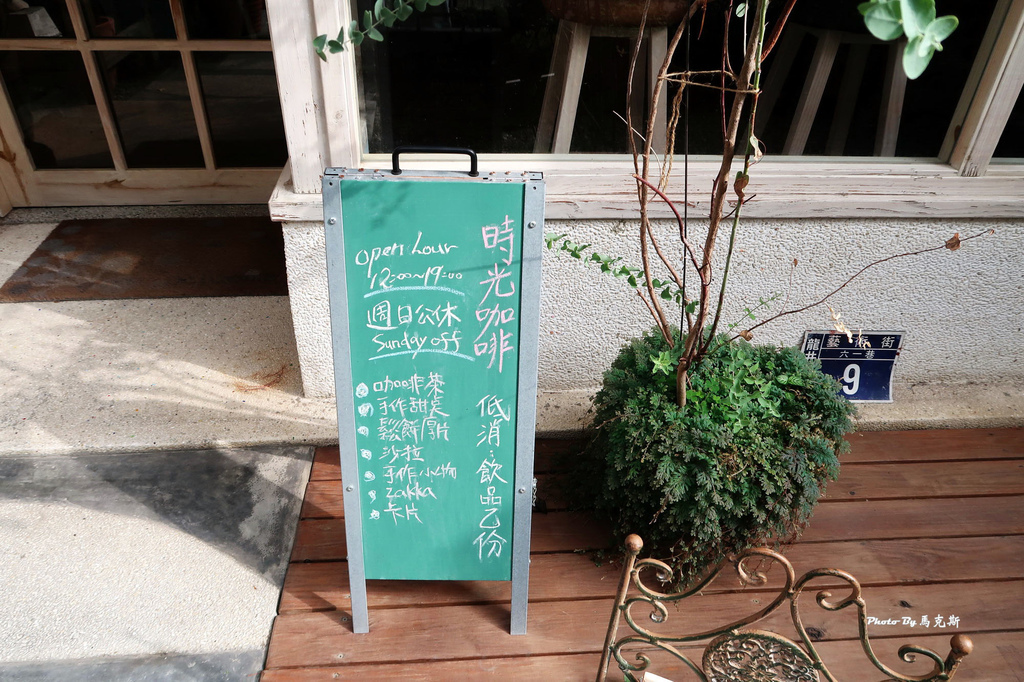 時光咖啡
低消:飲品乙份
open hour
12:00~19:00
週日公休
Sunday off
咖啡茶
手作甜点
鬆餅厚片
沙拉
手作小物
zakka
卡片
龍井 藝術街
六一巷
9
Photo By 馬克斯